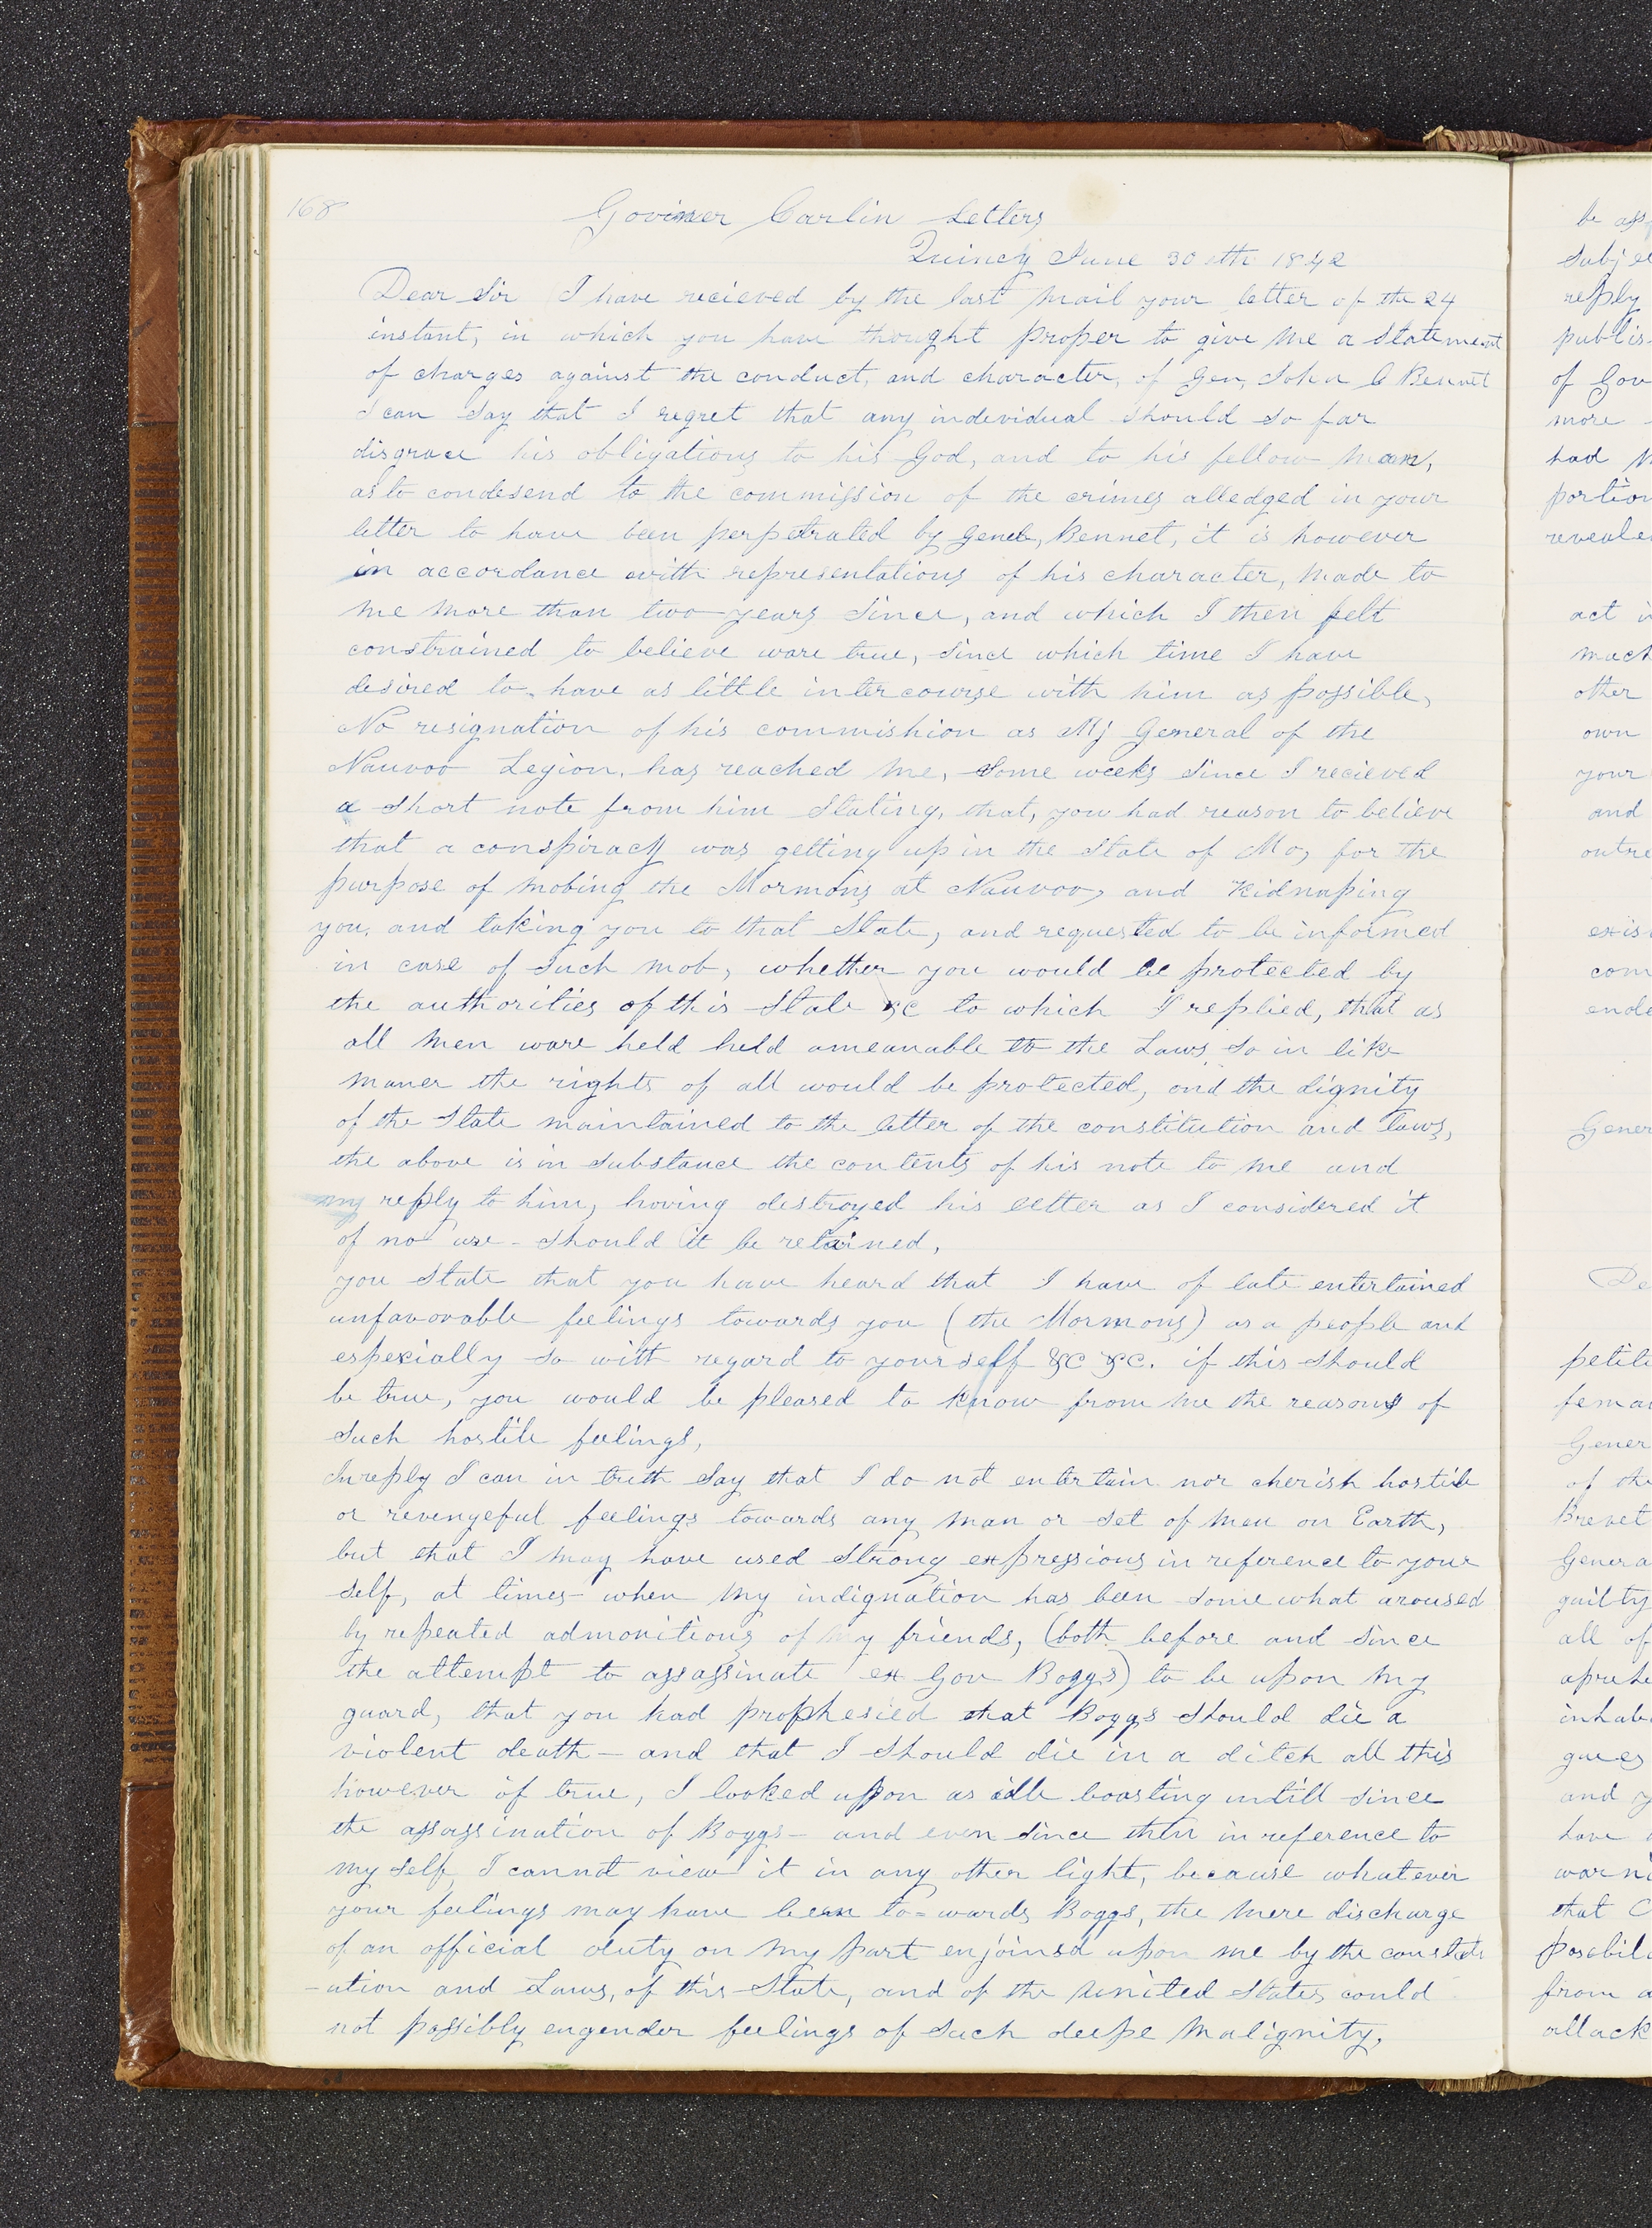 168
Goviner Carlin Letters
Quincy June 30 eth 1842
Dear Sir I have recieved by the last mail your letter of the 24
instant, in which you have thought proper to give me a Statement
of charges against the conduct, and character, of Gen, John C Bennet
I can Say that I regret that any individual should so far
disgrace his obligations to his God, and to his fellow man,
as to condesend to the commission of the crimes alledged in your
letter to have been perpetrated by Genel, Bennet, it is however
in accordance with representations of his character, made to
me more than two years Since, and which I then felt
constrained to believe ware true, Since which time I have
desired to have as little intercourse with him as possible,
No resignation of his commishion as Mj General of the
Nauvoo Legion, has reached me, Some weeks Since I recieved
a Short note from him Stating, that, you had reason to believe
that a conspiracy was getting up in the State of Mo, for the
purpose of mobing the Mormons at Nauvoo, and Kidnaping
you, and taking you to that State, and requested to be informed
in case of Such mob, whether you would be protected by
the authorities of this State &C to which I replied, that as
all men ware held held ameanable to the Laws, So in like
maner the rights of all would be protected, and the dignity
of the State maintained to the letter of the constitution and laws,
the above is in Substance the contents of his note to me and
my reply to him, having destroyed his letter as I considered it
of no use - Should it be retained,
you State that you have heard that I have of late entertained
unfavorable feelings towards you (the Mormons) as a people and
especially So with regard to yourself &C &C. if this Should
be true, you would be pleased to know from me the reasons of
Such hostile feelings,
In reply I can in truth Say that I do not entertain nor cherish hostile
or revengeful feelings towards any man or Set of men on Earth,
but that I may have used Strong expressions in reference to your
Self, at times when my indignation has been Some what aroused
by repeated admonitions of my friends, (both before and Since
the attempt to assassinate ex Gov Boggs) to be upon my
guard, that you had prophesied that Boggs Should die a
violent death - and that I Should die in a ditch all this
however if true, I looked upon as idle boasting untill since
the assassination of Boggs - and even since then in reference to
my Self, I cannot view it in any other light, because whatever
your feelings may have been to=wards Boggs, the mere discharge
of an official duty on my part enjoined upon me by the constit
-ution and Laws, of this State, and of the United States could
not possibly engender feelings of Such deepe Malignity,
be
Subje
reply
publis
of Gov
more
had
portion
reveale
act
mach
other
own
your
and
outre
exis
com
ende
Gener
De
petiti
femal
Gener
of the
Brevet
Genera
guilty
all of
apreh
inhab
gues
and y
have
warn
that C
posebil
from a
attack